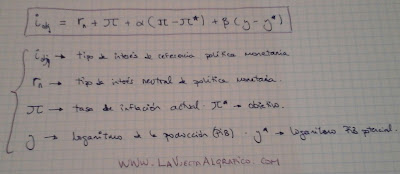 i_obj = r_n + π + α (π - π*) + β (y - y*)
i_obj → tipo de interés de referencia política monetaria
r_n → tipo de interés neutral de política monetaria.
π → tasa de inflación actual. π* → objetivo.
y → logaritmo de la producción (PIB). y* → logaritmo PIB potencial.
WWW.LAVUELTAALGRAFICO.COM